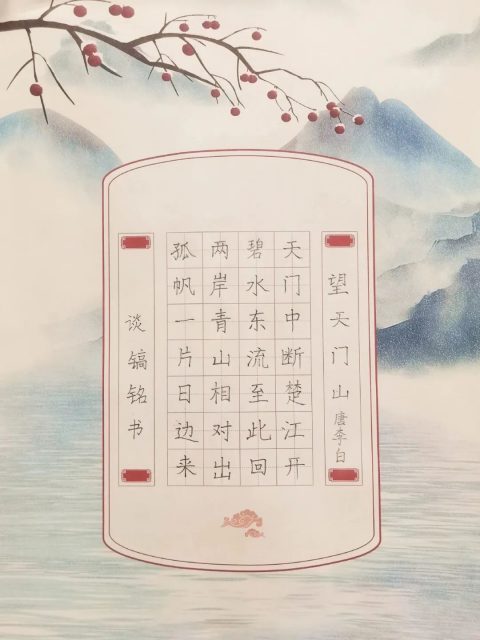 望天门山 唐李白
天门中断楚江开
碧水东流至此回
两岸青山相对出
孤帆一片日边来
谈镐铭书